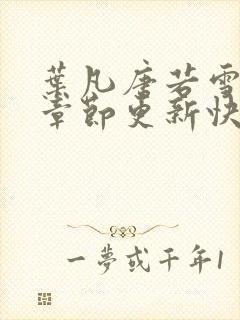 葉凡唐若雪
章節更新快
一夢或千年1